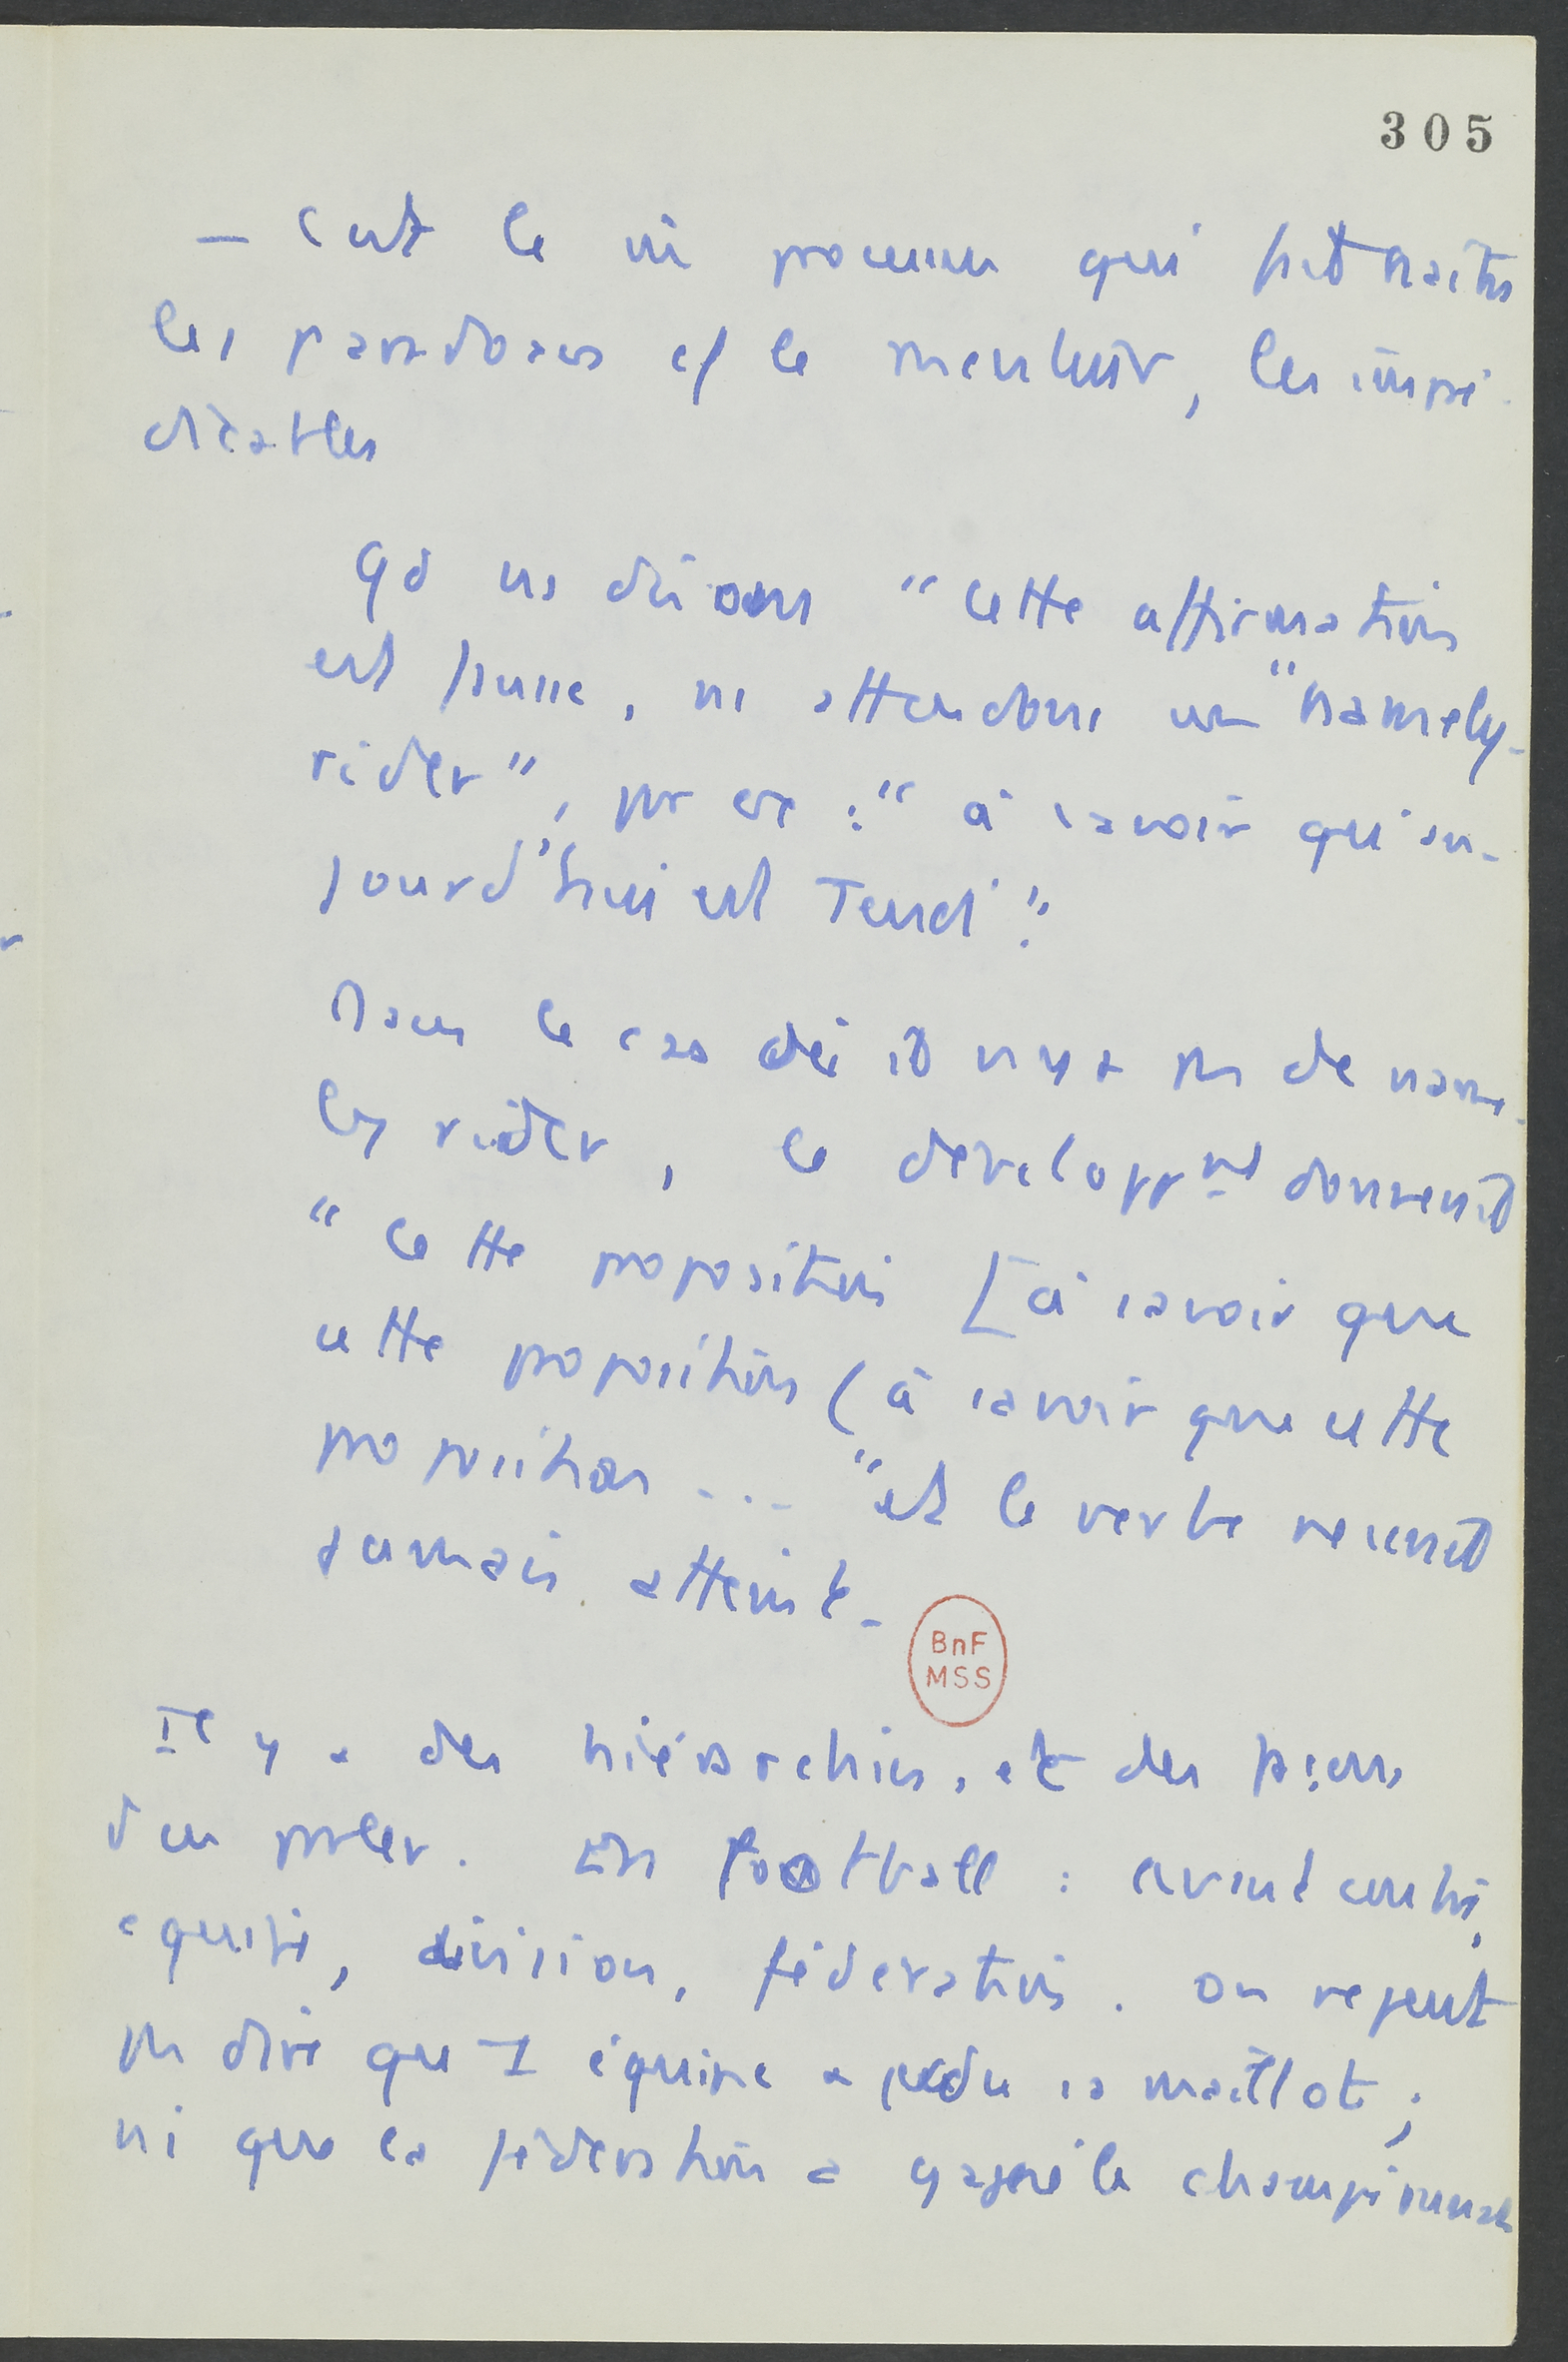 305
— C'est le m̂ processus qui fait naître
les paradoxes cf le menteur, les impré-
dicables
Qd ns disons "cette affirmation
est fausse, ns attendons un "namely-
rider", par ex : "à savoir qu'au-
jourd'hui est Jeudi".
Dans le cas où il n'y a pas de name-
ly rider, le developpmt donnerait
"Cette proposition [à savoir que
cette proposition (à savoir que cette
proposition ... " et le verbe ne serait
jamais atteint.
Il y a des hiérarchies, et des façons
d'en parler. En football : avant centre,
équipe, division, fédération. On ne peut
pas dire que l'équipe a perdu sa maillot ;
ni que la fédération a gagné le championnat
BnF
MSS